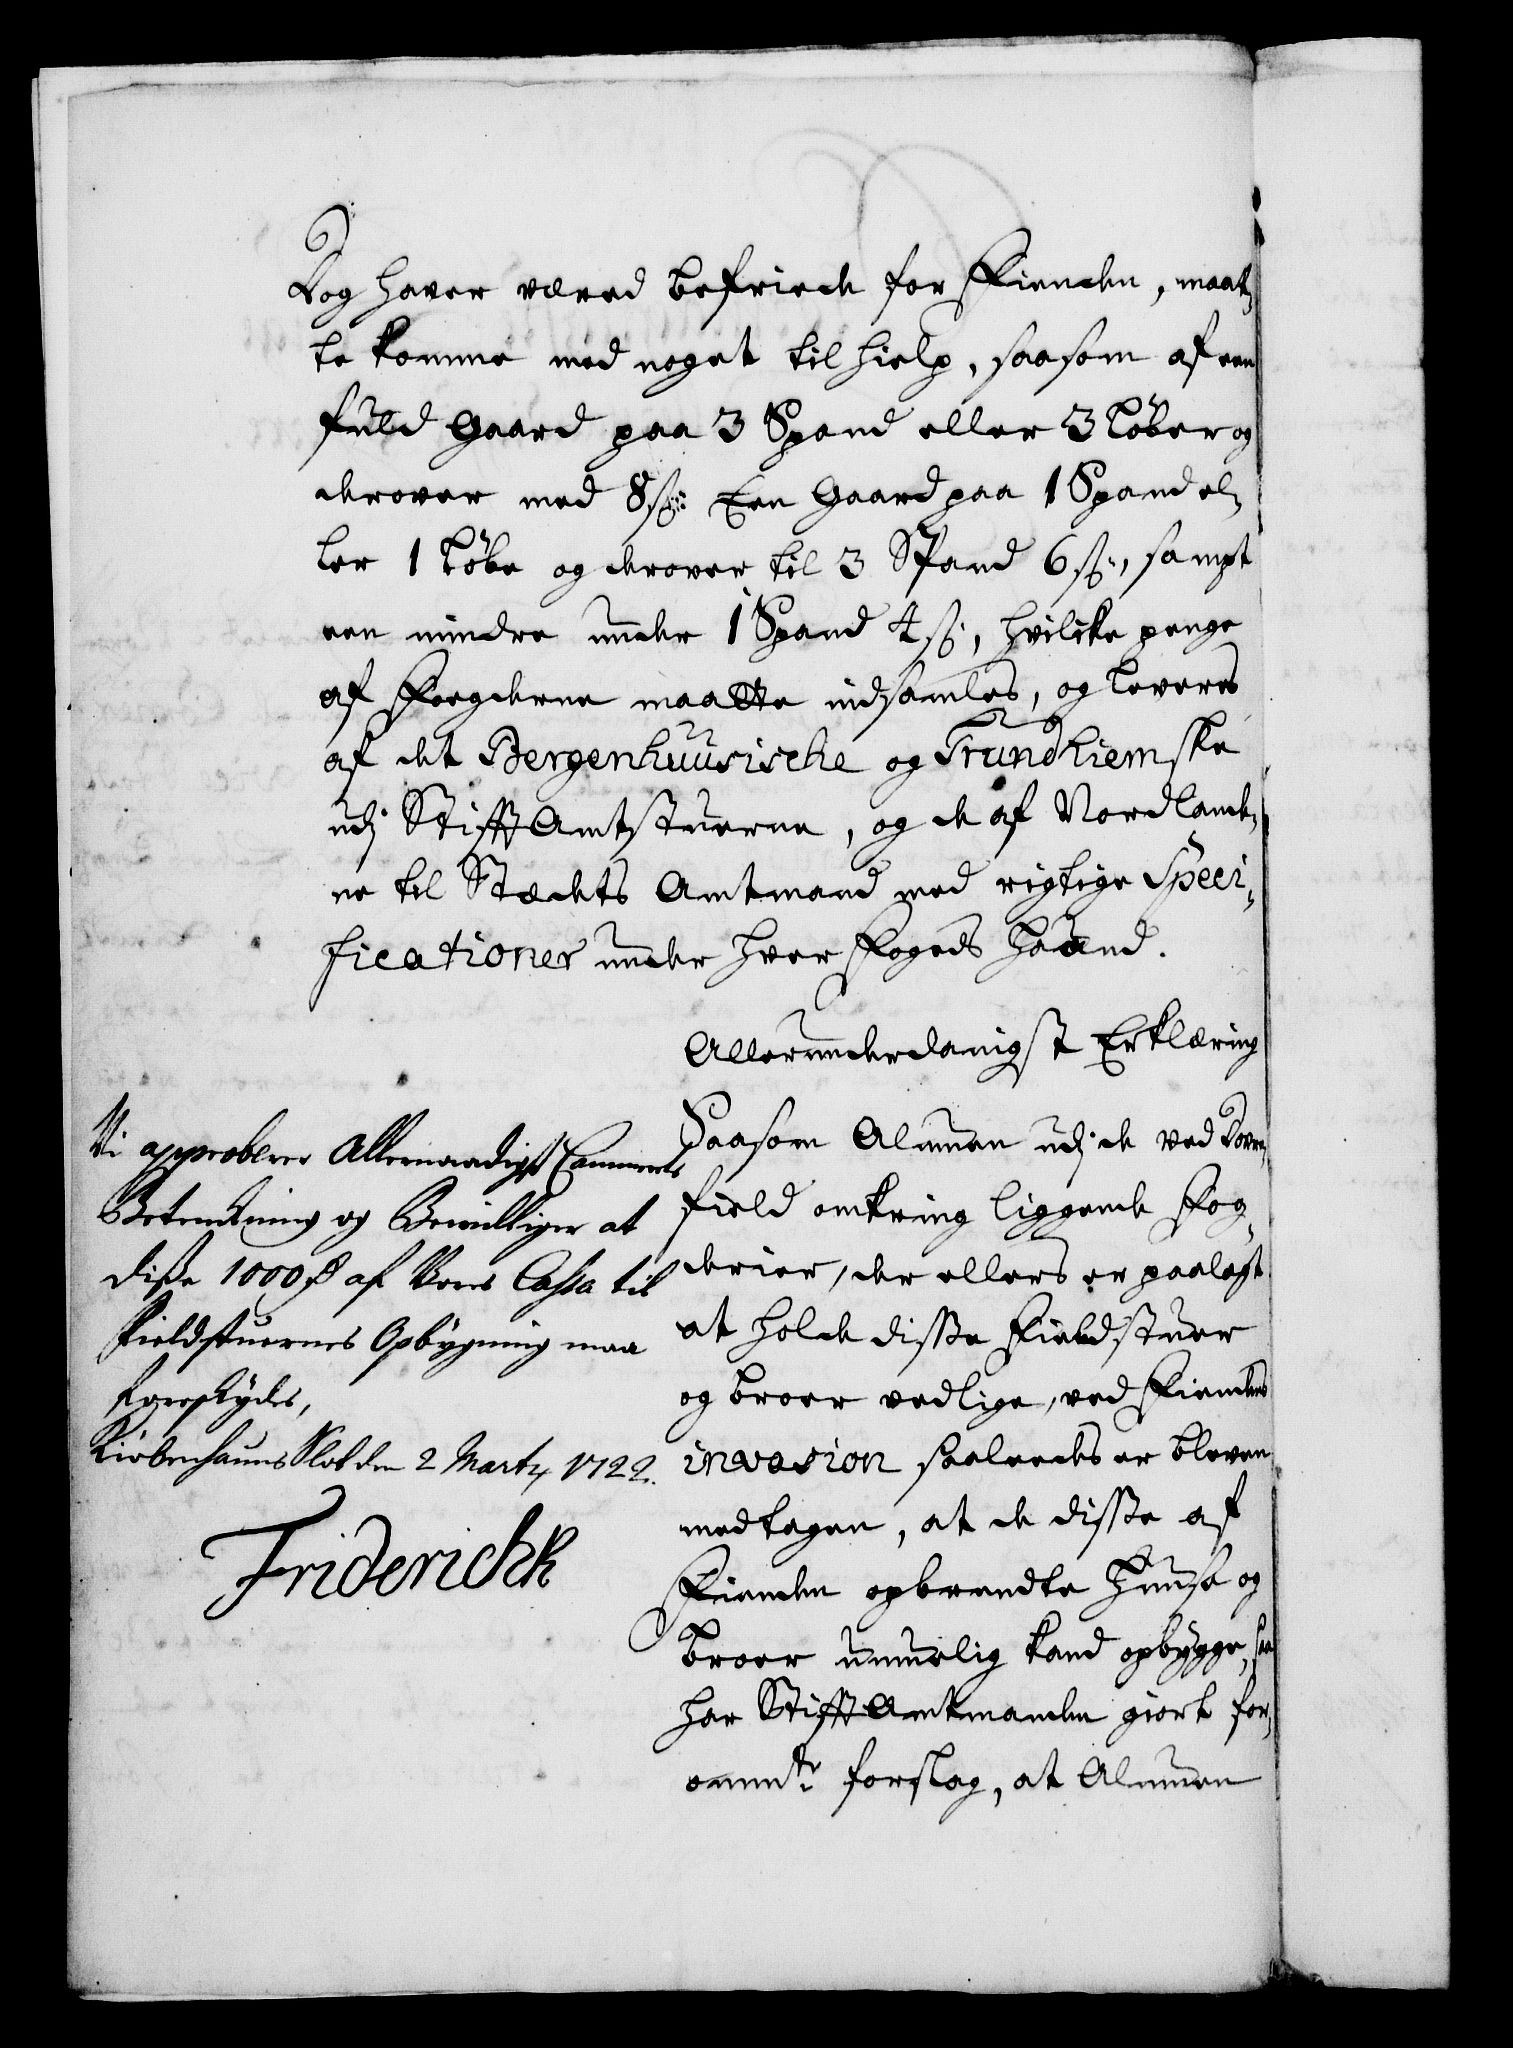 Dog haver været befriede for Fienden, maat-
te komme med noget til hielp, saasom af een
fuld Gaard paa 3 Spand eller 3 Løber og
derover med 8 ß: Een Gaard paa 1 Spand el-
ler 1 Løbe og derover til 3 Spand 6 ß, sampt
een mindre under 1 Spand 4 ß, hvilcke penge
af Foegderne maatte indsamles, og leveres
af det Bergenhuusische og Trundhiemske
udj StifftAmtstuerne, og de af Nordlande-
ne til Stædets Amtmand med rigtige Speci-
ficationer under hver Fogeds Haand.
Allerunderdanigst Erklæring
Saasom Almuen udj de ved Dovre-
field omkring liggende Fog-
derier, der ellers er paalagt
at holde disse Fieldstuer
og broer vedlige, ved Fiendens
invasion saaledes er bleven
medtagen, at de disse af
Fienden opbrendte Huuse og
broer umuelig kand opbygge, saa
har StifftAmtmanden giort for-
ommte forslag, at Almuen
Vi approberer Allernaadigst Cammerets
Betenkning og Bewilliger at
diße 1000 Rd af Vores Cassa til
Fieldstuernes Opbygning maa
forskydes,
Kiøbenhauns Slot den 2 Martij 1722.
Friderich R